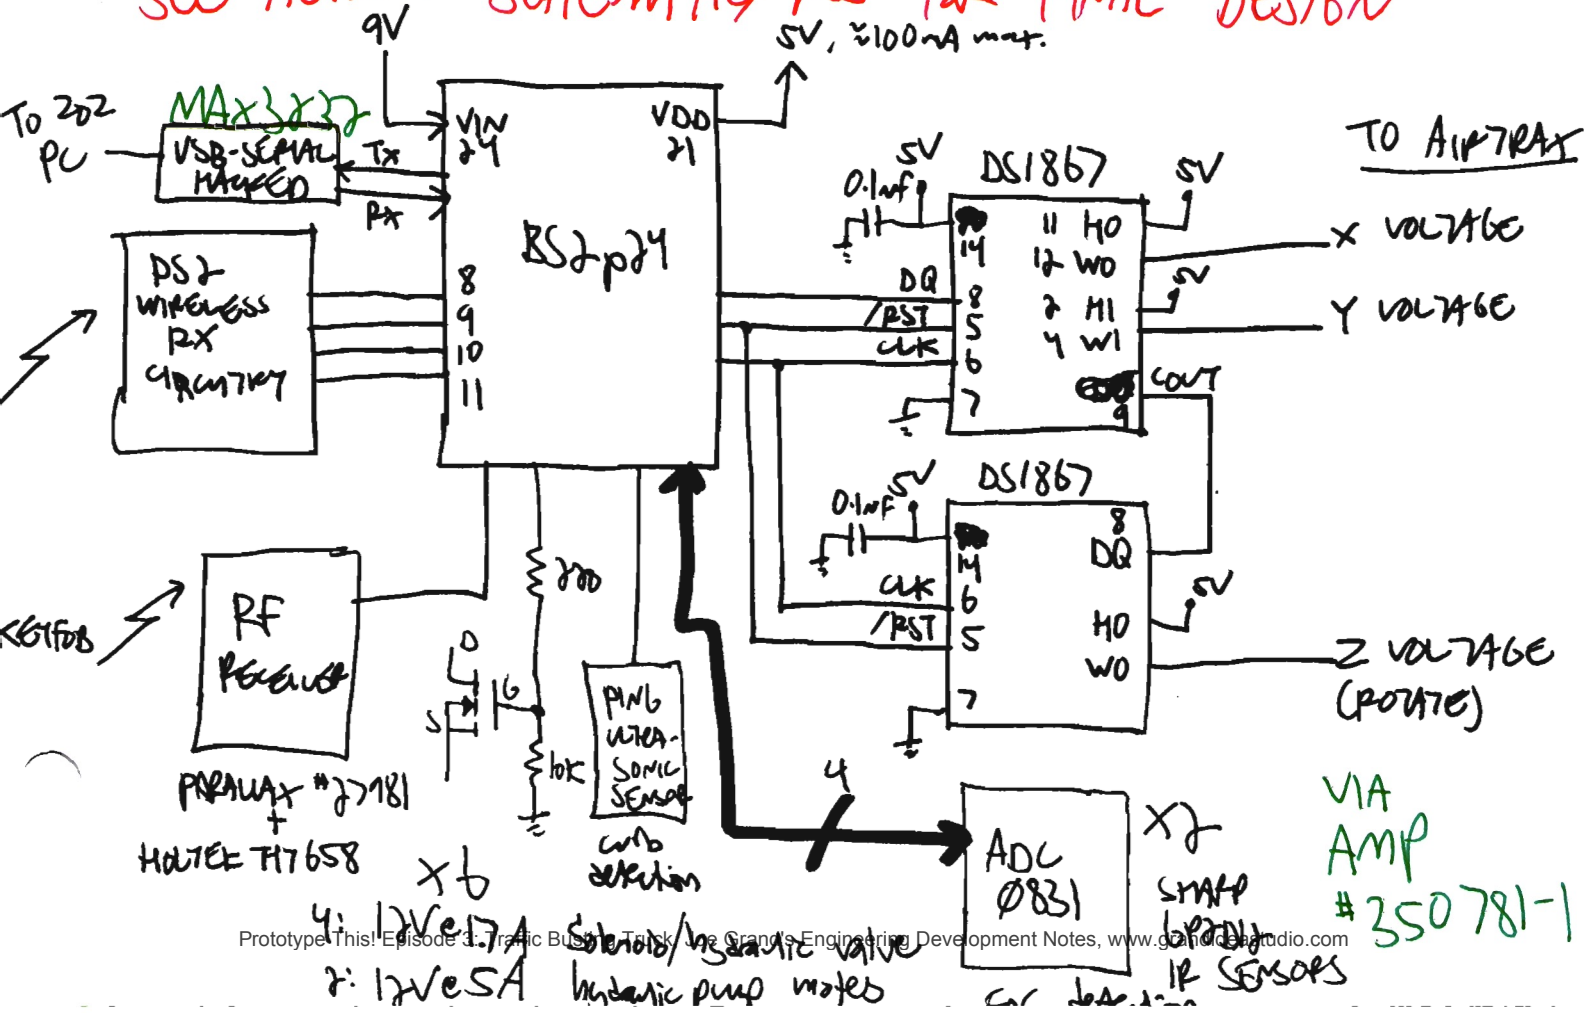 SEE SCHEMATIC FOR DESIGN
9V
5V, ≈100mA max.
TO 202
PC
MAX3232
USB-SERIAL
HACKED
TX
RX
VIN
24
VDD
21
BS2p24
8
9
10
11
PS2
WIRELESS
RX
CIRCUITRY
DQ
/RST
CLK
5V
0.1uF
DS1867
14
8
5
6
7
11 H0
12 W0
2 H1
4 W1
COUT
9
5V
5V
TO AIRTRAX
X VOLTAGE
Y VOLTAGE
DS1867
5V
0.1uF
14
CLK
6
/RST
5
7
8
DQ
H0
W0
5V
Z VOLTAGE
(ROTATE)
KEYFOB
RF
RECEIVER
PARALLAX #27981
+
HOLTEK HT7658
220
D
G
S
10K
PING
ULTRA-
SONIC
SENSOR
curb
detection
4
ADC
0831
X2
SHARP
GP2D12
IR SENSORS
VIA
AMP
#350781-1
X6
4: 12V@1.7A solenoid/hydraulic valve
2: 12V@5A hydraulic pump motors
car detection
Prototype This! Episode 3: Traffic Busting Truck, Joe Grand's Engineering Development Notes, www.grandideastudio.com